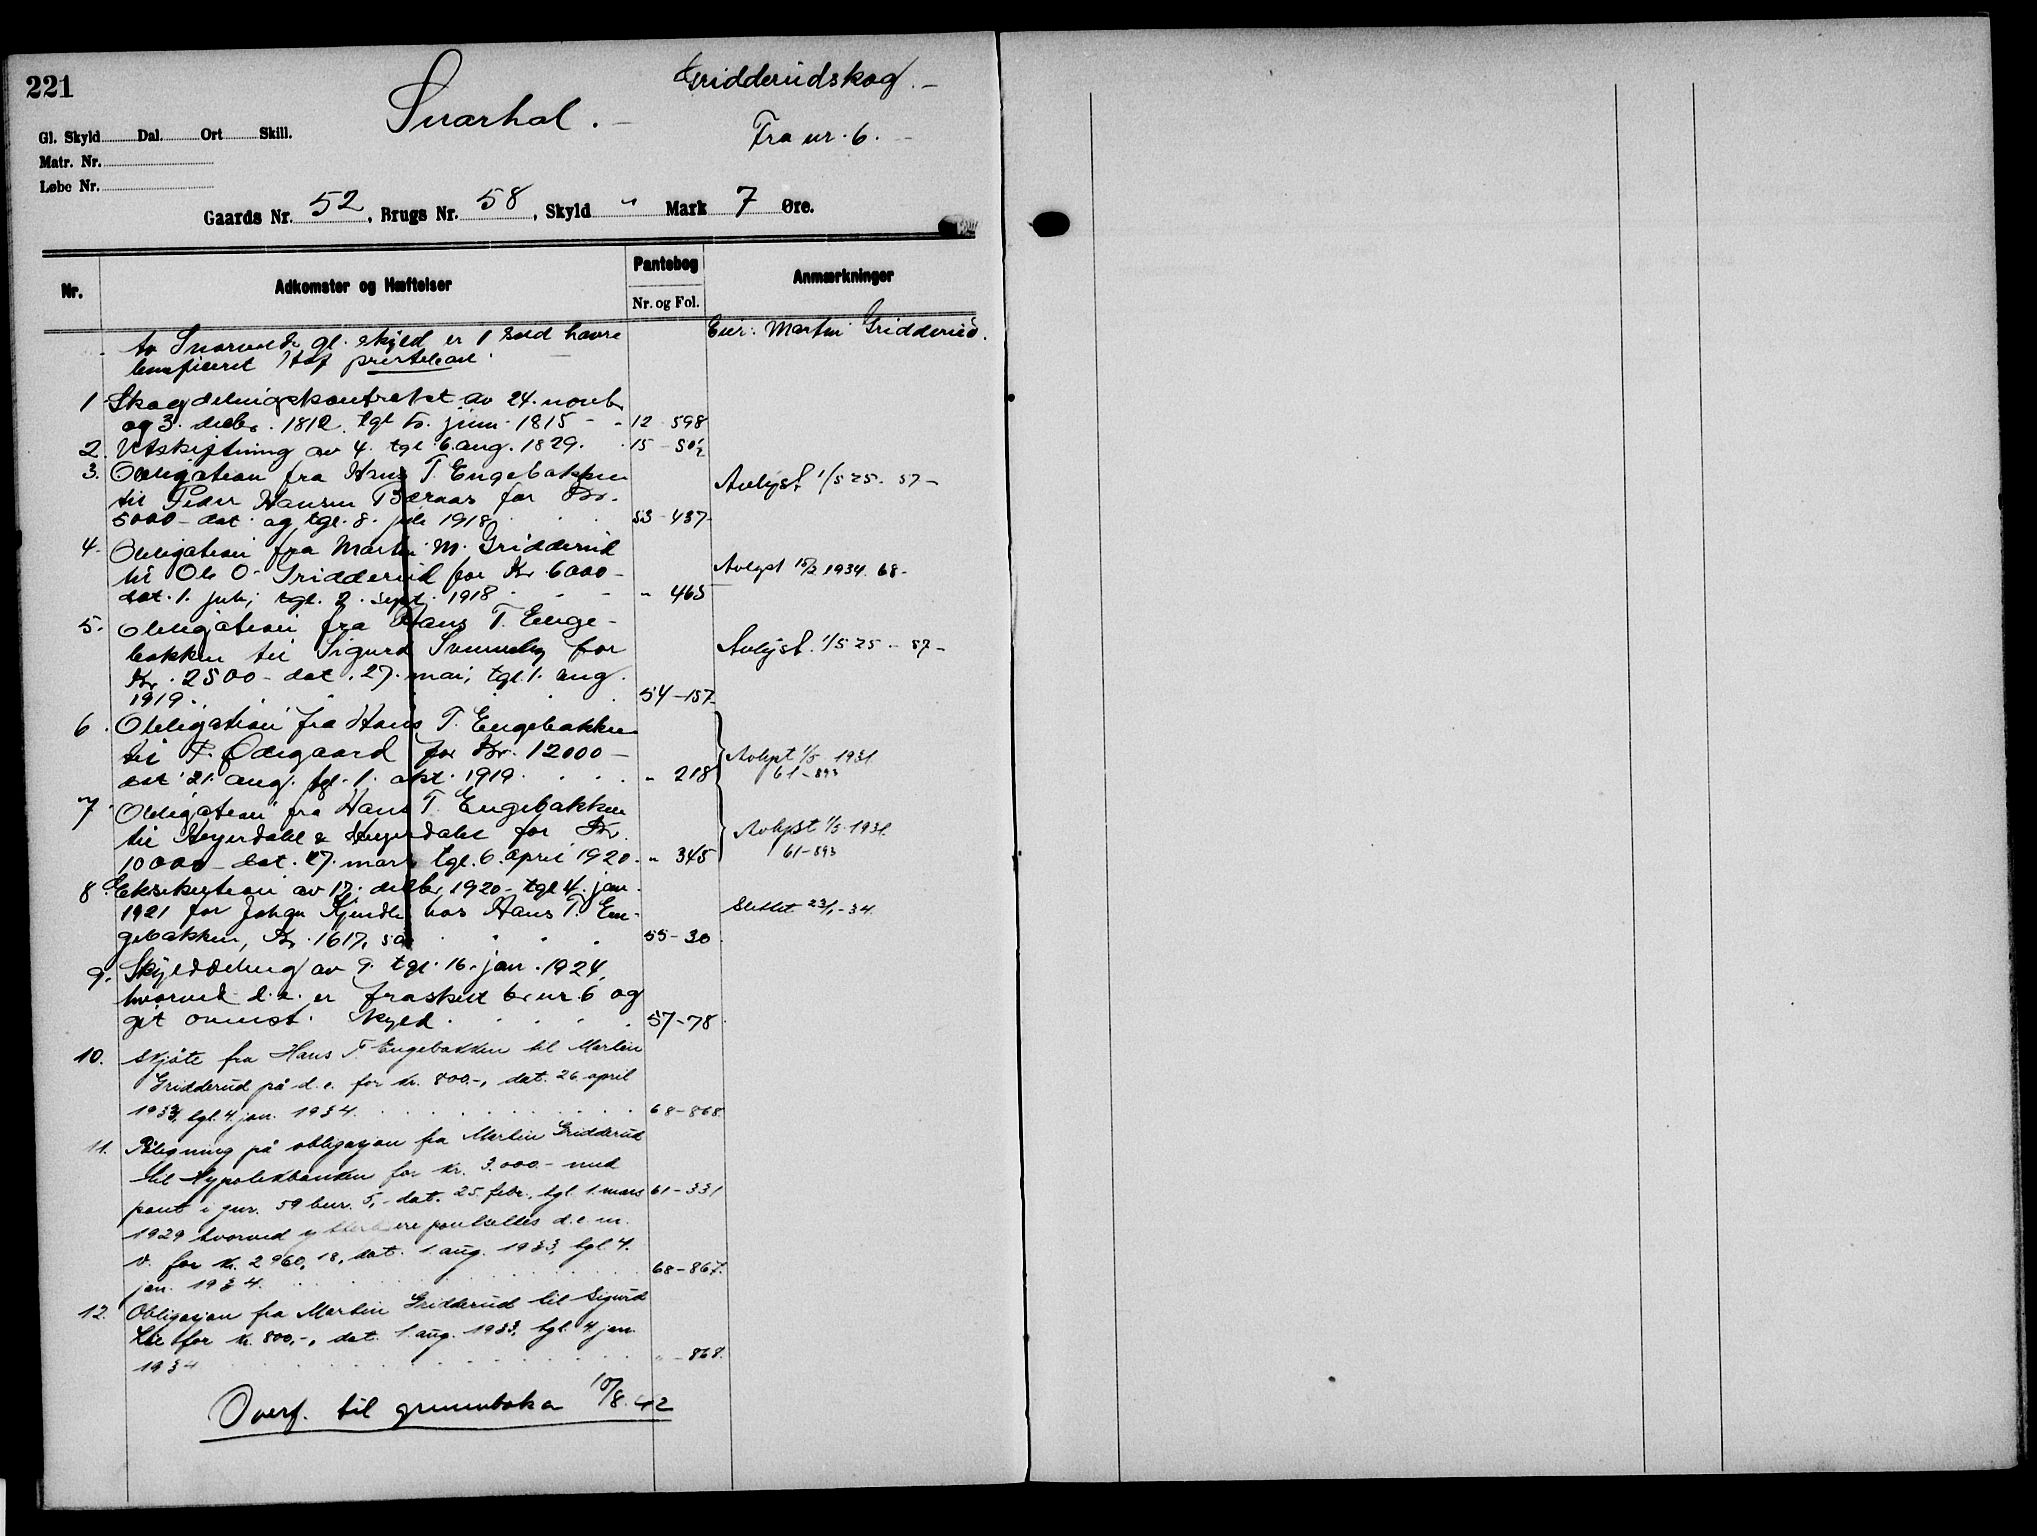 221
Gridderudskog. —
Snarhol. —
Fra nr. 6. —
Gl. Skyld Dal. Ort Skill.
Matr. Nr.
Løbe Nr.
Gaards Nr. 52, Brugs Nr. 58, Skyld " Mark 7 Øre.
Nr. Adkomster og Hæftelser Pantebog Nr. og Fol. Anmærkninger
Av gl. skyld er 1 havre Eier: Martin Gridderud.
beneficeret Hof
1 Skogdelingskontrakt av 24. novbr
og 3. decbr. 1812. tgl. juni 1815 - - 12 598
2. Utskiftning av 4. tgl. 6. aug. 1829. 15 -
3. Obligation fra Hans T. Engebakken Avlyst 1/5 25. 57 -
til Peder Hansen for Kr.
5000 - dat. og tgl. 8. juli 1918 53 - 437
4. Obligation fra Martin M. Gridderud
til Ole O. Gridderud for Kr. 6000 - Avlyst 15/2 1934. 68 -
dat. 1. juli, tgl. 2. sept. 1918 " 463
5. Obligation fra Hans T. Enge-
bakken til Sigurd for Avlyst. 1/5 25 - 57 -
Kr. 2500 - dat. 27. mai, tgl. 1. aug.
1919. 54 - 157
6. Obligation fra Hans T. Engebakken
til Ødegaard for Kr. 12000 - Avlyst 1/5 1931
dat. 21. aug. tgl. 1. okt. 1919. " 218 61 - 893
7. Obligation fra Hans T. Engebakken
til Heyerdahl & Heyerdahl for Kr. Avlyst 1/5 1931.
10000 - dat. 27. mars tgl. 6. april 1920. " 345 61 - 893
8. Eksekution av 17. decbr. 1920 - tgl. 4. jan.
1921 for Johan hos Hans T. En- Slettet 23/1 - 34.
gebakken, Kr. 1617, 50 55 - 30
9. Skylddeling av 9. tgl. 16. jan. 1924,
hvorved d. e. er fraskilt br. nr. 6 og
git ovennst. skyld. 57 - 78
10. Skjøte fra Hans T. Engebakken til Martin
Gridderud på d. e. for kr. 800.-, dat. 26. april
1933, tgl. 4. jan. 1934. 68 - 868.
11. Påtegning på obligasjon fra Martin Gridderud
til Hypotekbanken for kr. 3.000.- med
pant i gnr. 59 bnr. 5, - dat. 25. febr., tgl. 1. mars 61 - 331
1929 hvorved ytterligere pantsettes d. e. m.
v. for kr. 2960, 18, dat. 1. aug. 1933, tgl. 4.
jan. 1934. 68 - 867.
12. Obligasjon fra Martin Gridderud til Sigurd
Lie for kr. 800,-, dat. 1. aug. 1933, tgl. 4. jan.
1934 " - 868.
Overf. til grunnboka 10/8. 42